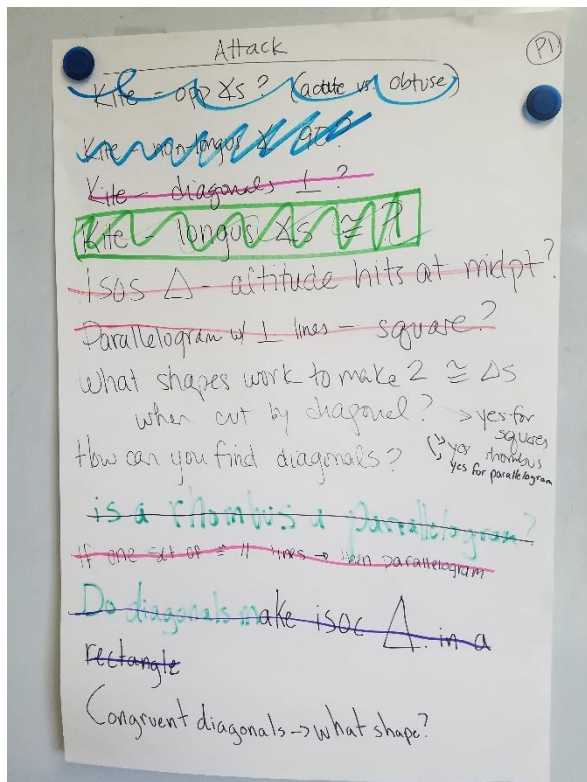 Attack
P1
Kite - opp ∡s? (acute vs. obtuse)
Kite non-longus ∡ 90?
Kite - diagonals ⊥ ?
Kite - longus ∡s ≅ ?
isos △ - altitude hits at midpt?
Parallelogram w/ ⊥ lines - square?
What shapes work to make 2 ≅ △s
when cut by diagonal? → yes for
squares
How can you find diagonals? ↳ yes rhombus
yes for parallelogram
is a rhombus a parallelogram?
If one set of = // lines → then parallelogram
Do diagonals make isoc △ in a
rectangle
Congruent diagonals → what shape?